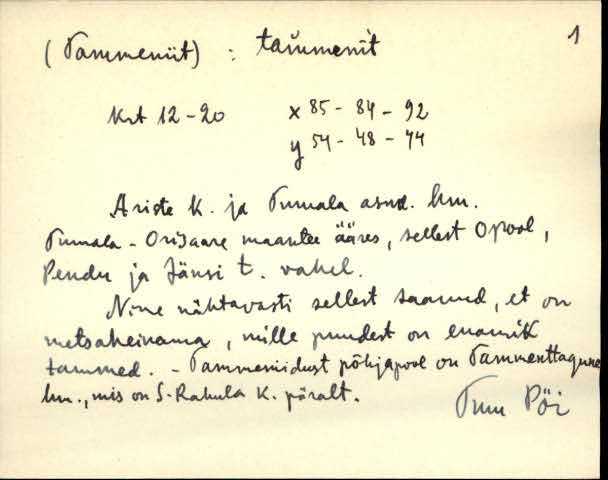 (Tammeniit) : tammenit 1
Krt 12-20 x 85 - 84 - 92
y 54 - 48 - 44
Ariste K. ja Tumala asud. hm.
Tumala - Orisaare maantee ääres, sellest Opool,
Pendu ja Jänsi t. vahel.
Nime nähtavasti sellest saanud, et on
metsaheinama, mille puudest on enamik
tammed. - Tammeniidust põhjapool on Tammenttaguse
hm., mis on S-Rahula K. päralt.
Tmu Pöi